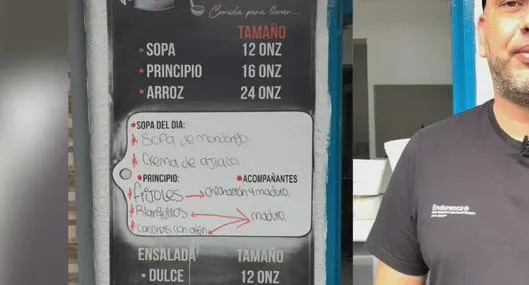 Comida para llevar...
TAMAÑO
• SOPA 12 ONZ
• PRINCIPIO 16 ONZ
• ARROZ 24 ONZ
• SOPA DEL DIA:
Sopa de mondongo.
Crema de ajiaco.
• PRINCIPIO: • ACOMPAÑANTES
frijoles → chicharrón y maduro.
Blanquillos → maduro.
con atún
ENSALADA TAMAÑO
• DULCE 12 ONZ
Endurance+